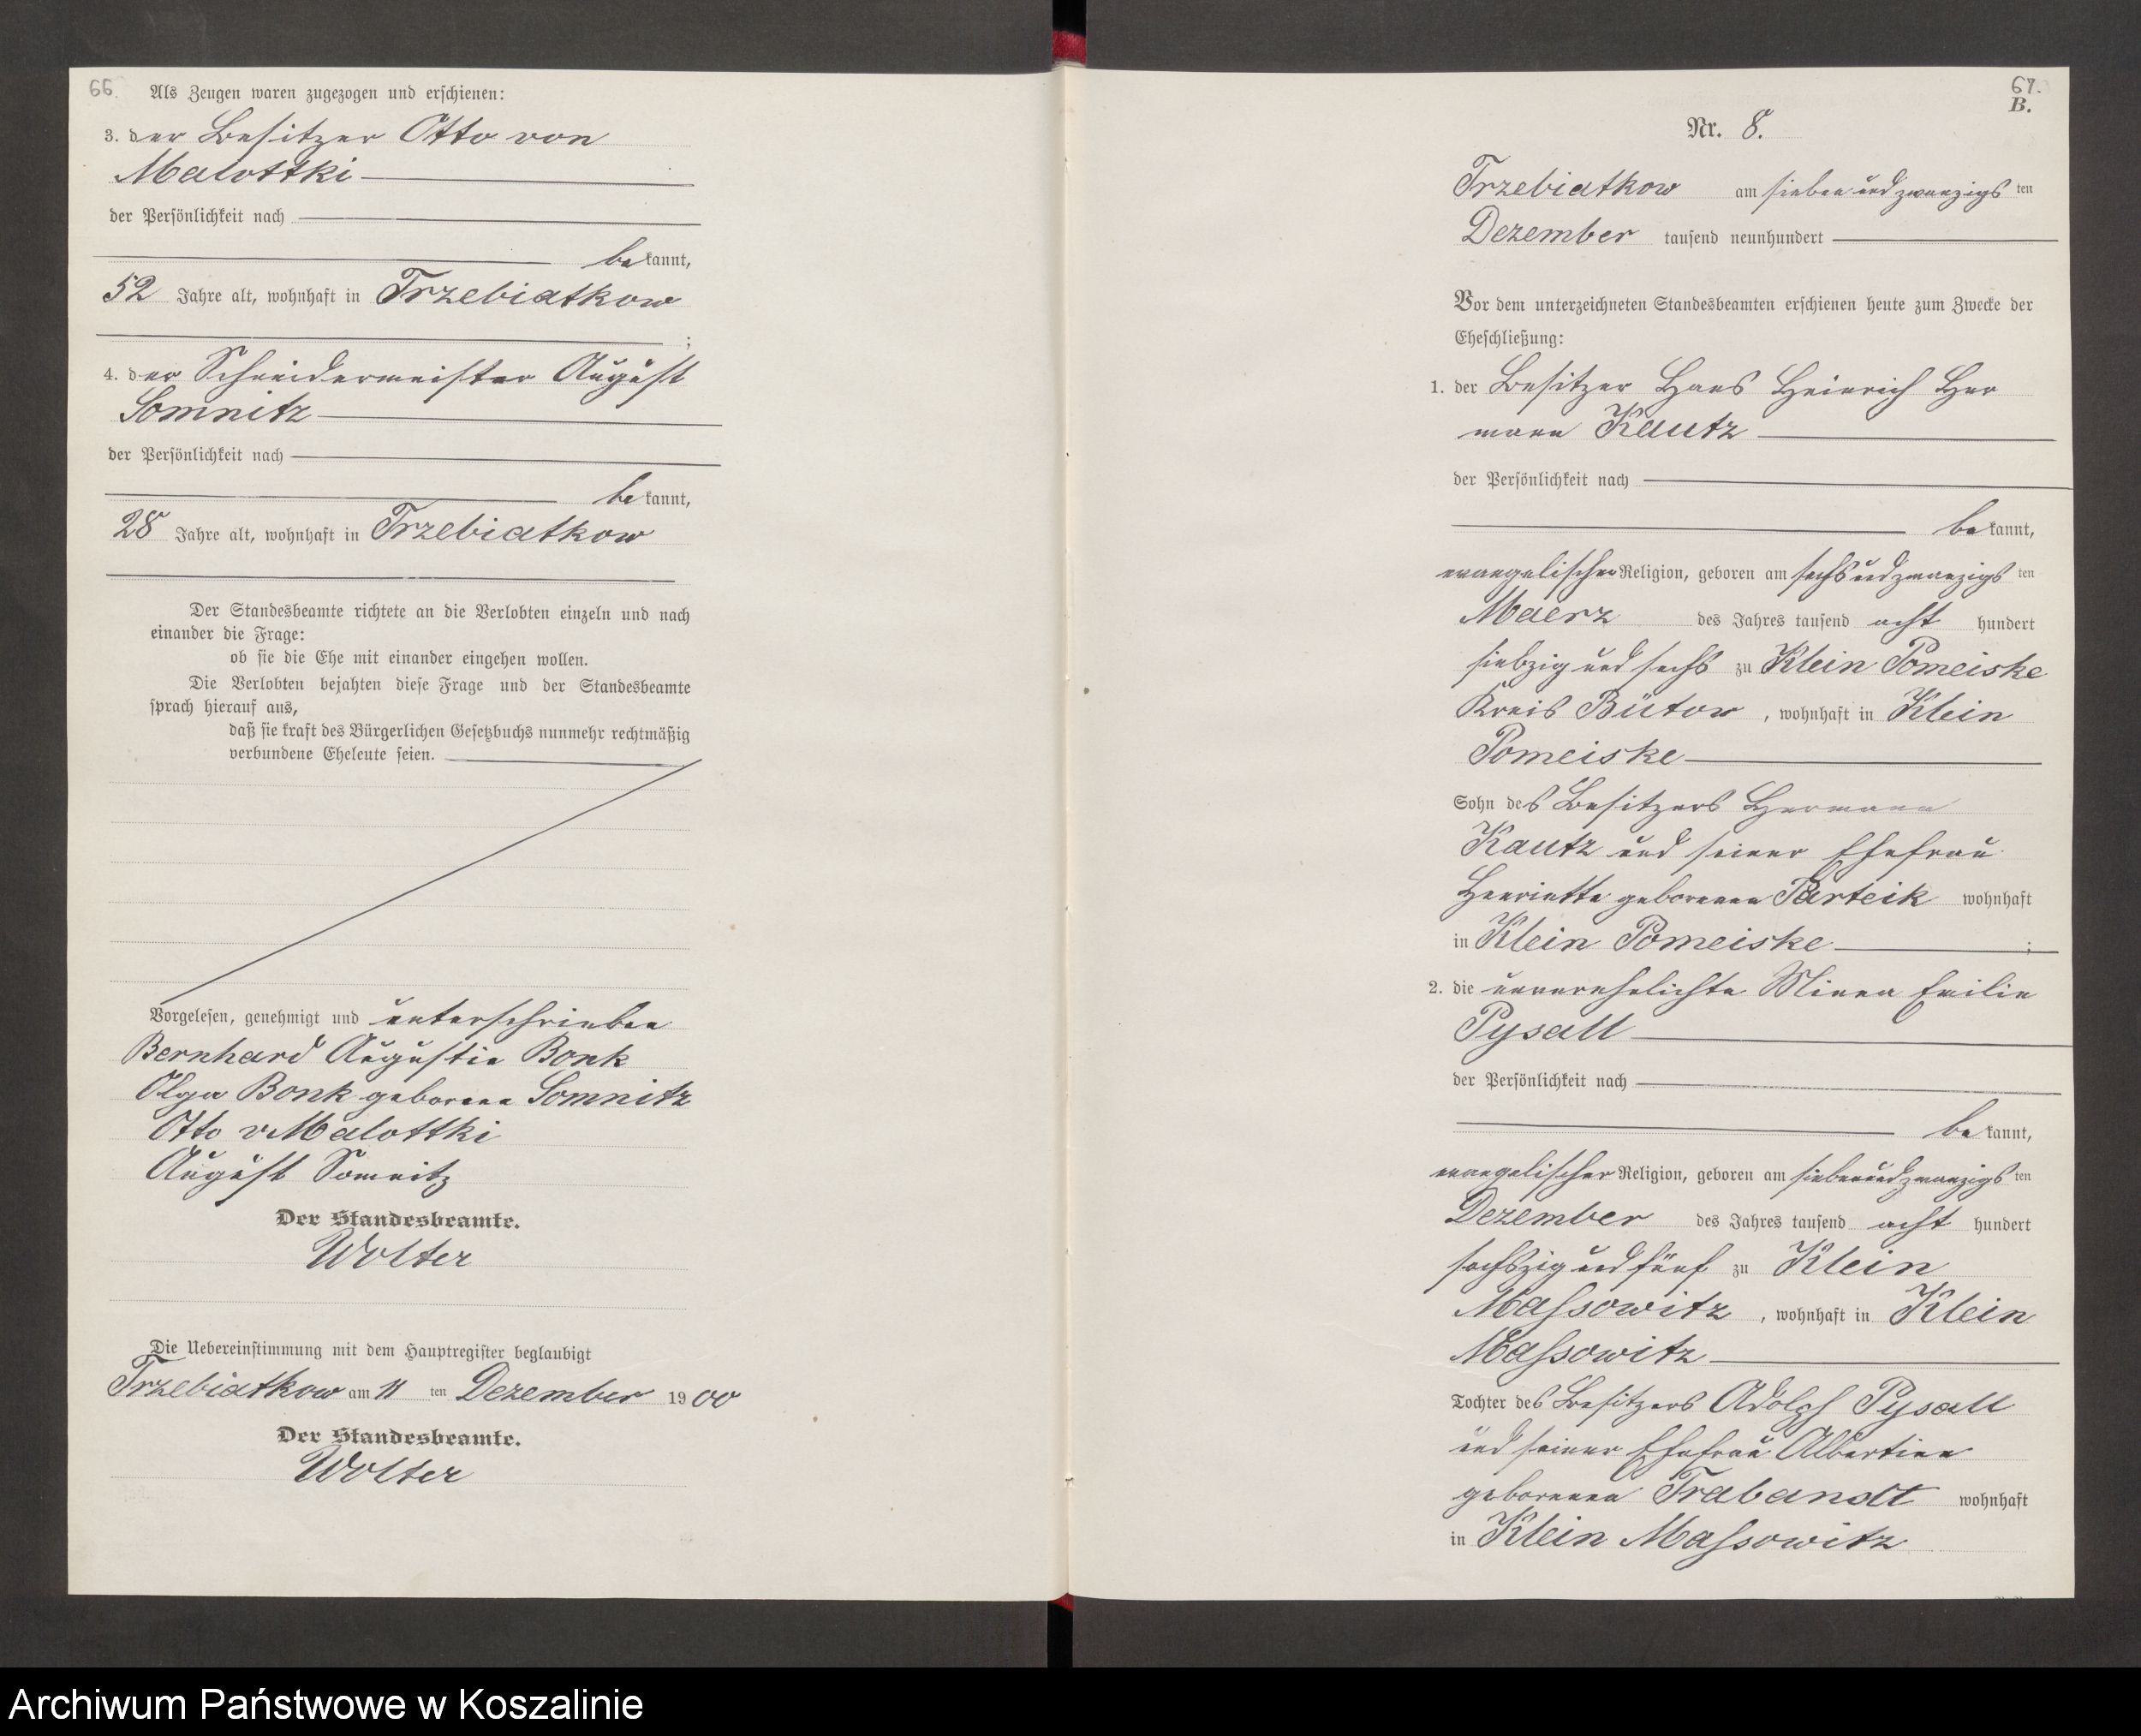 66.
Als Zeugen waren zugezogen und erschienen:
3. der Besitzer Otto von
Malottki
der Persönlichkeit nach
bekannt,
52 Jahre alt, wohnhaft in Trzebiatkow
;
4. der Schneidermeister August
Somnitz
der Persönlichkeit nach
bekannt,
28 Jahre alt, wohnhaft in Trzebiatkow
Der Standesbeamte richtete an die Verlobten einzeln und nach
einander die Frage:
ob sie die Ehe mit einander eingehen wollen.
Die Verlobten bejahten diese Frage und der Standesbeamte
sprach hierauf aus,
daß sie kraft des Bürgerlichen Gesetzbuchs nunmehr rechtmäßig
verbundene Eheleute seien.
Vorgelesen, genehmigt und unterschrieben
Bernhard Augustin Bonk
Olga Bonk geborene Somnitz
Otto v Malottki
August Somnitz
Der Standesbeamte.
Wolter
Die Uebereinstimmung mit dem Hauptregister beglaubigt
Trzebiatkow am 11 ten Dezember 1900
Der Standesbeamte.
Wolter
67.
B.
Nr. 8.
Trzebiatkow am sieben und zwanzigsten
Dezember tausend neunhundert
Vor dem unterzeichneten Standesbeamten erschienen heute zum Zwecke der
Eheschließung:
1. der Besitzer Hans Heinrich Her
mann Kautz
der Persönlichkeit nach
bekannt,
evangelischer Religion, geboren am sechs und zwanzigsten
Maerz des Jahres tausend acht hundert
siebzig und sechs zu Klein Pomeiske
Kreis Bütow, wohnhaft in Klein
Pomeiske
Sohn des Besitzers Hermann
Kautz und seiner Ehefrau
Henriette geborenen Parteik wohnhaft
in Klein Pomeiske ;
2. die unverehelichte Minna Emilie
Pysall
der Persönlichkeit nach
bekannt,
evangelischer Religion, geboren am sieben und zwanzigsten
Dezember des Jahres tausend acht hundert
sechszig und fünf zu Klein
Massowitz, wohnhaft in Klein
Massowitz
Tochter des Besitzers Adolph Pysall
und seiner Ehefrau Albertine
geborenen Trabandt wohnhaft
in Klein Massowitz
Archiwum Państwowe w Koszalinie